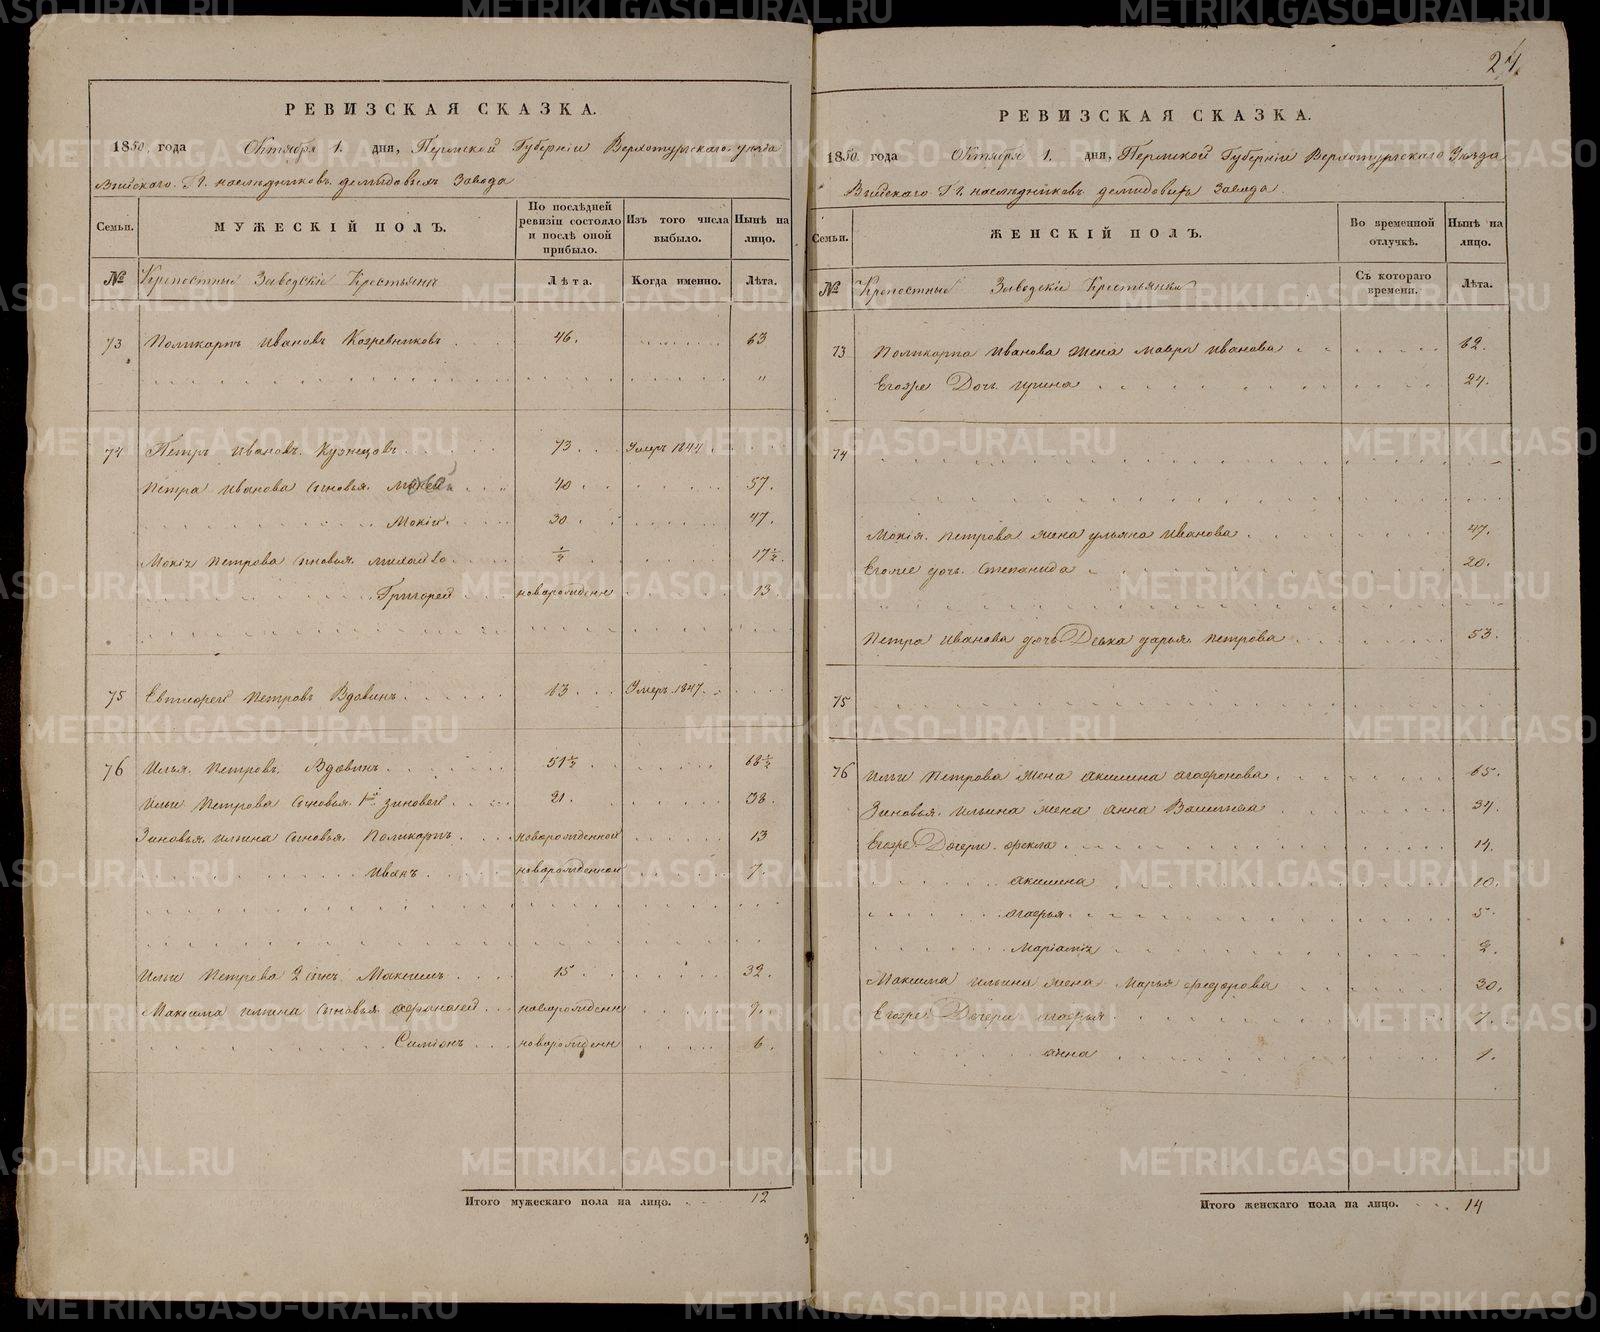 24.
РЕВИЗСКАЯ СКАЗКА.
1850. года Октября 1. дня, Пермской Губерніи Верхотурскаго уезда
Выйскаго Гг. наследниковъ демидовыхъ Завода
Семьи. МУЖЕСКІЙ ПОЛЪ. По послѣдней ревизіи состояло и послѣ оной прибыло. Изъ того числа выбыло. Нынѣ на лицо.
№ Крепостные Заводскіе Крестьяна Лѣта. Когда именно. Лѣта.
73 Поликарпъ Ивановъ Козревниковъ 46. 63
"
74 Петръ Ивановъ Кузнецовъ 73 Умеръ 1844
Петра Иванова сыновья 40 57.
Мокій 30 47.
Мокія Петрова сыновья Михайло ½ 17½
Григорей новорожденн 13
75 Петровъ Вдовинъ 13 Умеръ 1847
76 Илья Петровъ Вдовинъ 51½ 68½
Ильи Петрова сыновья 1й Зиновей 21. 38.
Зиновья Ильина сыновья Поликарпъ новорожденной 13
Иванъ новорожденной 7.
Ильи Петрова 2 сынъ Максимъ 15 32
Максима Ильина сыновья Афонасей новорожденн 9.
Симіонъ новорожденн 6.
Итого мужескаго пола на лицо. 12
РЕВИЗСКАЯ СКАЗКА.
1850. года Октября 1. дня, Пермской Губерніи Верхотурскаго Уезда
Выйскаго Гг. наследниковъ демидовыхъ Завода.
Семьи. ЖЕНСКІЙ ПОЛЪ. Во временной отлучкѣ. Нынѣ на лицо.
№ Крепостные Заводскіе Крестьянки Съ котораго времени. Лѣта.
73 Поликарпа Иванова жена Мавра Иванова 62.
Егоже Дочь Ирина 24.
74
Мокія Петрова жена Ульяна Иванова 47.
Егоже дочь Степанида 20.
Петра Иванова дочь Девка Дарья Петрова 53.
75
76 Ильи Петрова жена Акилина Агафонова 65.
Зиновья Ильина жена Анна 34
Егоже Дочери Фекла 14.
Акилина 10.
Агафья 5.
2.
Максима Ильина жена Марья Федорова 30.
Егоже Дочери Агафья 7.
Анна 1.
Итого женскаго пола на лицо. 14
METRIKI.GASO-URAL.RU